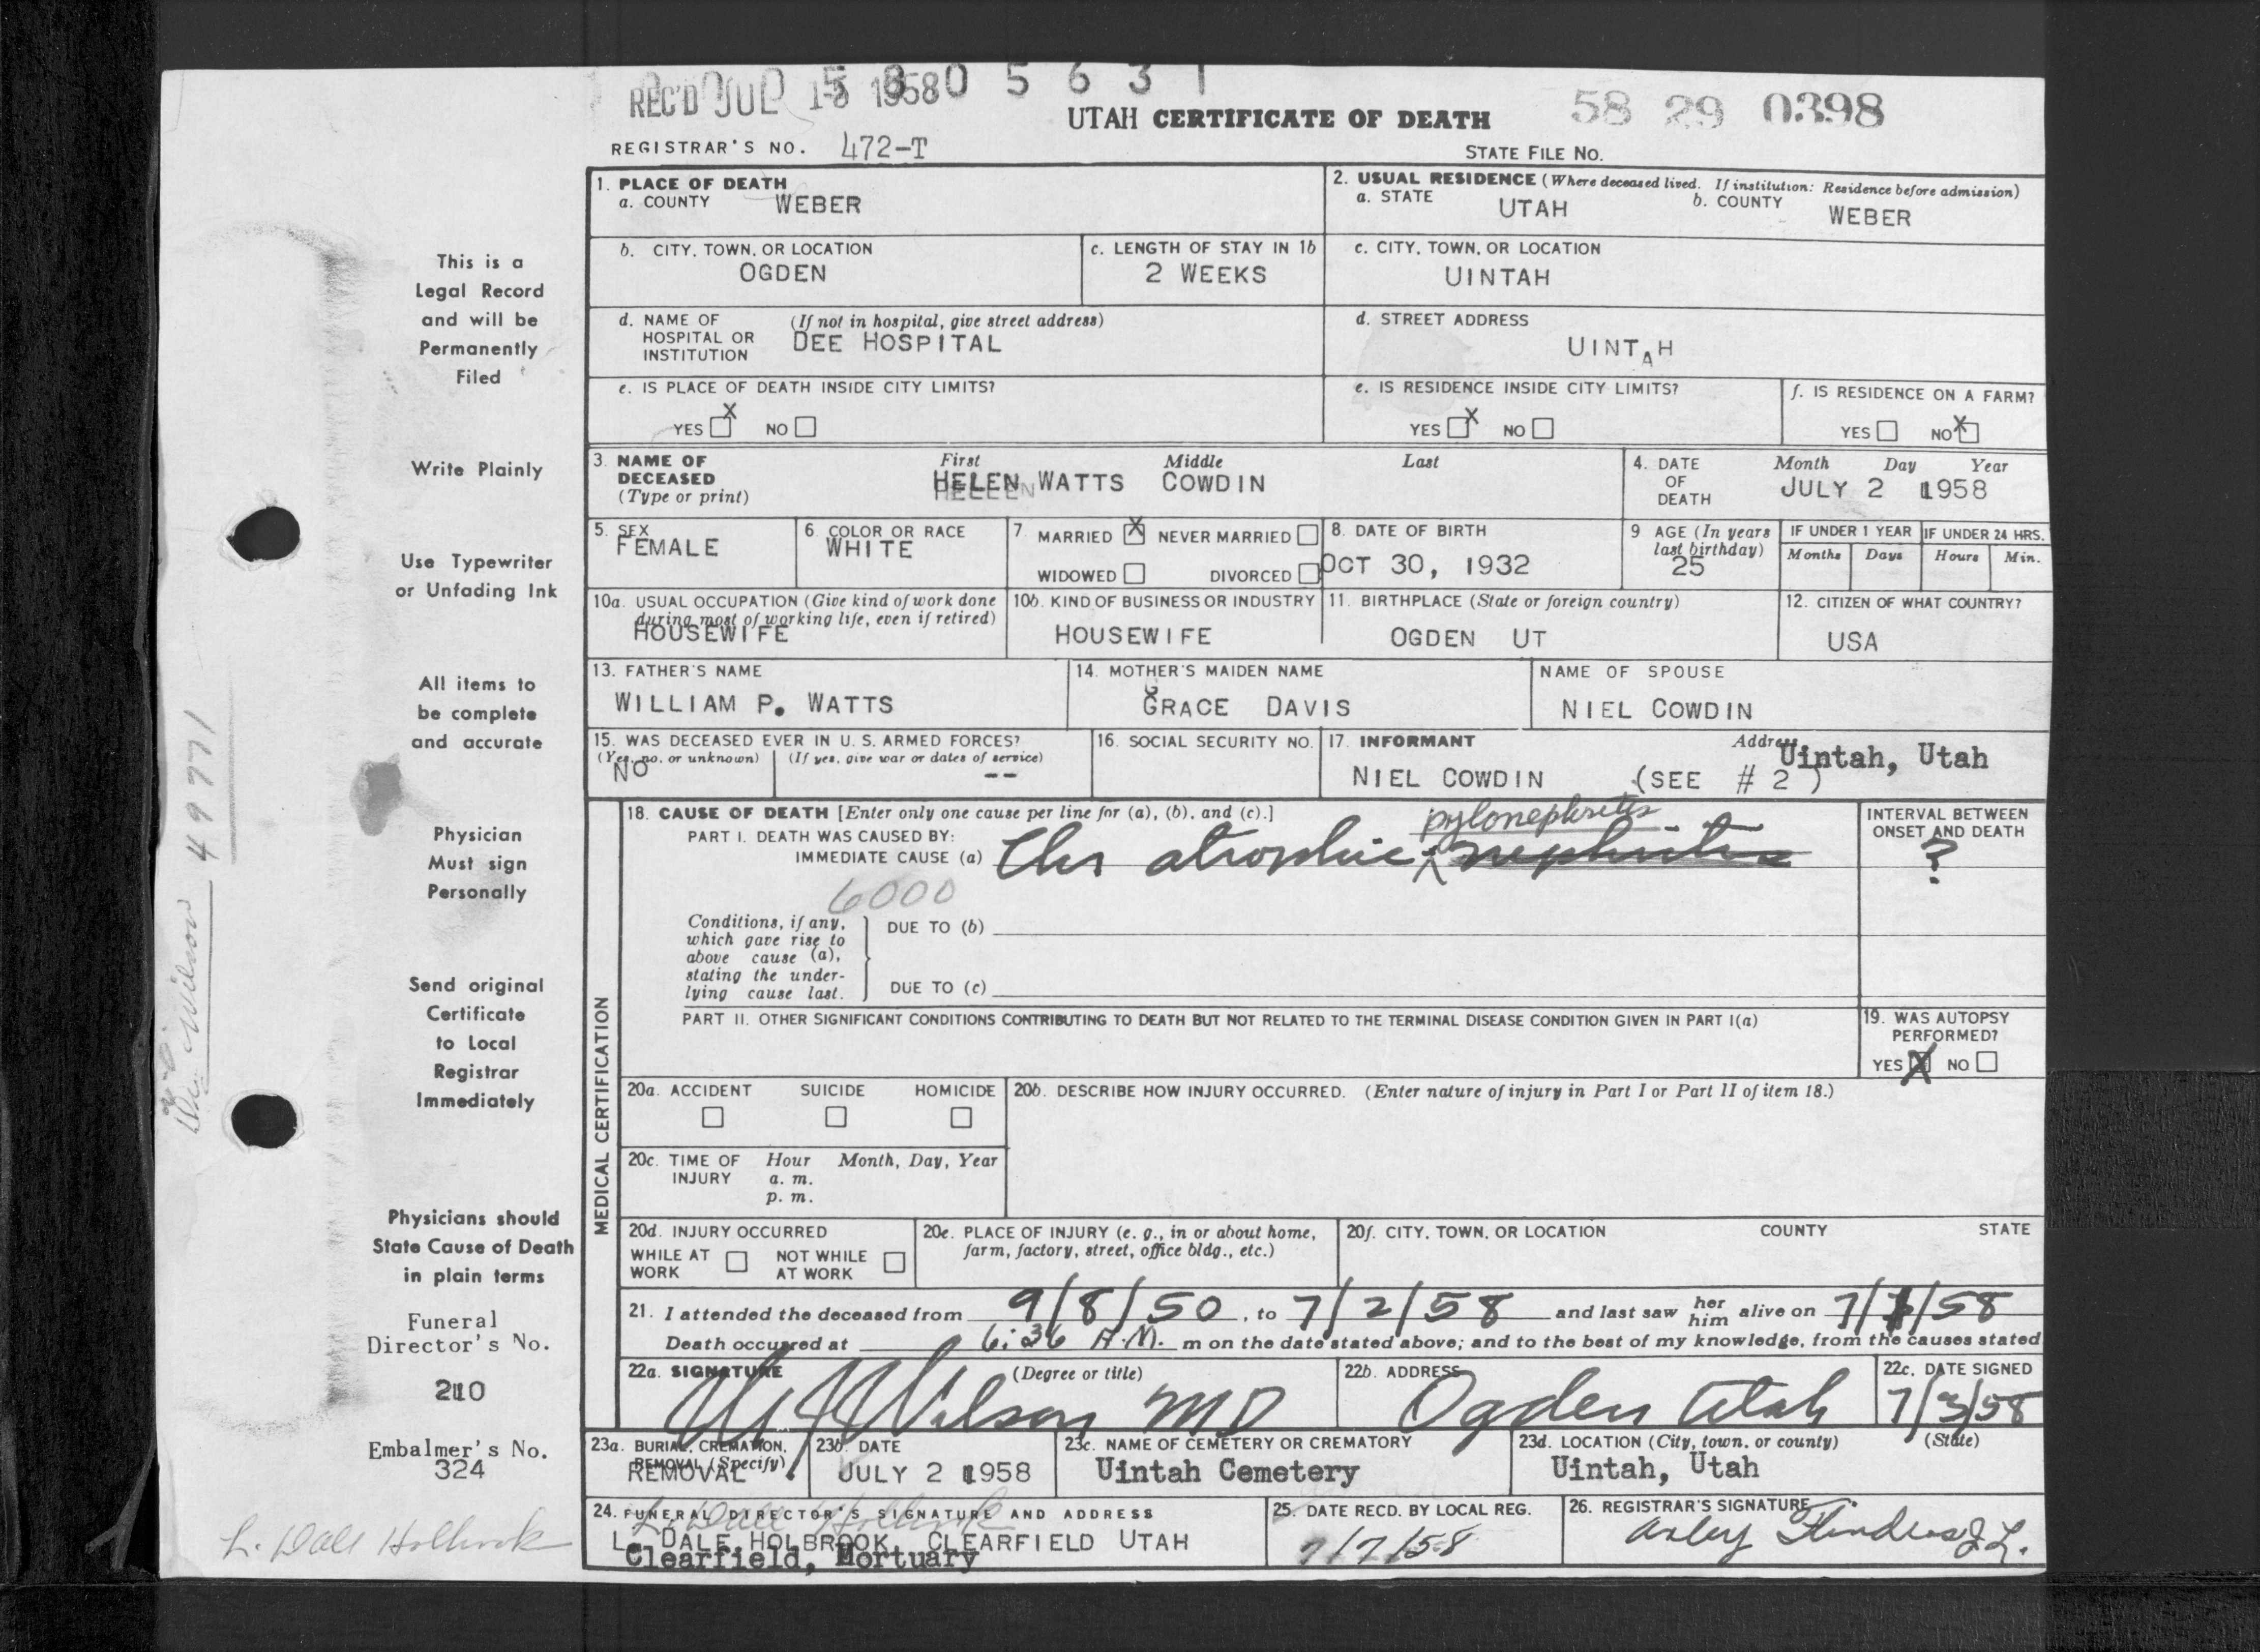 REC'D JUL 1958 0 5 6 3 1
UTAH CERTIFICATE OF DEATH
58 29 0398
REGISTRAR'S NO. 472-T
STATE FILE NO.
1. PLACE OF DEATH
a. COUNTY WEBER
2. USUAL RESIDENCE (Where deceased lived. If institution: Residence before admission)
a. STATE UTAH b. COUNTY WEBER
b. CITY, TOWN, OR LOCATION
OGDEN
c. LENGTH OF STAY IN 1b
2 WEEKS
c. CITY, TOWN, OR LOCATION
UINTAH
d. NAME OF HOSPITAL OR INSTITUTION (If not in hospital, give street address)
DEE HOSPITAL
d. STREET ADDRESS
UINTAH
e. IS PLACE OF DEATH INSIDE CITY LIMITS?
YES X NO
e. IS RESIDENCE INSIDE CITY LIMITS?
YES X NO
f. IS RESIDENCE ON A FARM?
YES NO X
3. NAME OF DECEASED (Type or print)
First Middle Last
HELEN WATTS COWDIN
4. DATE OF DEATH
Month Day Year
JULY 2 1958
5. SEX
FEMALE
6. COLOR OR RACE
WHITE
7. MARRIED X NEVER MARRIED
WIDOWED DIVORCED
8. DATE OF BIRTH
OCT 30, 1932
9. AGE (In years last birthday)
25
IF UNDER 1 YEAR IF UNDER 24 HRS.
Months Days Hours Min.
10a. USUAL OCCUPATION (Give kind of work done during most of working life, even if retired)
HOUSEWIFE
10b. KIND OF BUSINESS OR INDUSTRY
HOUSEWIFE
11. BIRTHPLACE (State or foreign country)
OGDEN UT
12. CITIZEN OF WHAT COUNTRY?
USA
13. FATHER'S NAME
WILLIAM P. WATTS
14. MOTHER'S MAIDEN NAME
GRACE DAVIS
NAME OF SPOUSE
NIEL COWDIN
15. WAS DECEASED EVER IN U. S. ARMED FORCES?
(Yes, no, or unknown) (If yes, give war or dates of service)
NO --
16. SOCIAL SECURITY NO.
17. INFORMANT Address
NIEL COWDIN (SEE # 2) Uintah, Utah
MEDICAL CERTIFICATION
18. CAUSE OF DEATH [Enter only one cause per line for (a), (b), and (c).]
PART I. DEATH WAS CAUSED BY:
IMMEDIATE CAUSE (a) Chr atrophic pylonephritis nephritis
6000
Conditions, if any, which gave rise to above cause (a), stating the underlying cause last.
DUE TO (b)
DUE TO (c)
INTERVAL BETWEEN ONSET AND DEATH
?
PART II. OTHER SIGNIFICANT CONDITIONS CONTRIBUTING TO DEATH BUT NOT RELATED TO THE TERMINAL DISEASE CONDITION GIVEN IN PART I(a)
19. WAS AUTOPSY PERFORMED?
YES X NO
20a. ACCIDENT SUICIDE HOMICIDE
20b. DESCRIBE HOW INJURY OCCURRED. (Enter nature of injury in Part I or Part II of item 18.)
20c. TIME OF INJURY Hour Month, Day, Year
a. m.
p. m.
20d. INJURY OCCURRED
WHILE AT WORK NOT WHILE AT WORK
20e. PLACE OF INJURY (e. g., in or about home, farm, factory, street, office bldg., etc.)
20f. CITY, TOWN, OR LOCATION COUNTY STATE
21. I attended the deceased from 9/8/50, to 7/2/58 and last saw her him alive on 7/1/58
Death occurred at 6:36 A.M. m on the date stated above; and to the best of my knowledge, from the causes stated
22a. SIGNATURE (Degree or title)
Wilson MD
22b. ADDRESS
Ogden Utah
22c. DATE SIGNED
7/3/58
23a. BURIAL, CREMATION, REMOVAL (Specify)
REMOVAL
23b. DATE
JULY 2 1958
23c. NAME OF CEMETERY OR CREMATORY
Uintah Cemetery
23d. LOCATION (City, town, or county) (State)
Uintah, Utah
24. FUNERAL DIRECTOR'S SIGNATURE AND ADDRESS
L. Dale Holbrook
L. DALE HOLBROOK CLEARFIELD UTAH
Clearfield, Mortuary
25. DATE RECD. BY LOCAL REG.
7/7/58
26. REGISTRAR'S SIGNATURE
This is a
Legal Record
and will be
Permanently
Filed
Write Plainly
Use Typewriter
or Unfading Ink
All items to
be complete
and accurate
Physician
Must sign
Personally
Send original
Certificate
to Local
Registrar
Immediately
Physicians should
State Cause of Death
in plain terms
Funeral
Director's No.
210
Embalmer's No.
324
L. Dale Holbrook
Wilson 49771